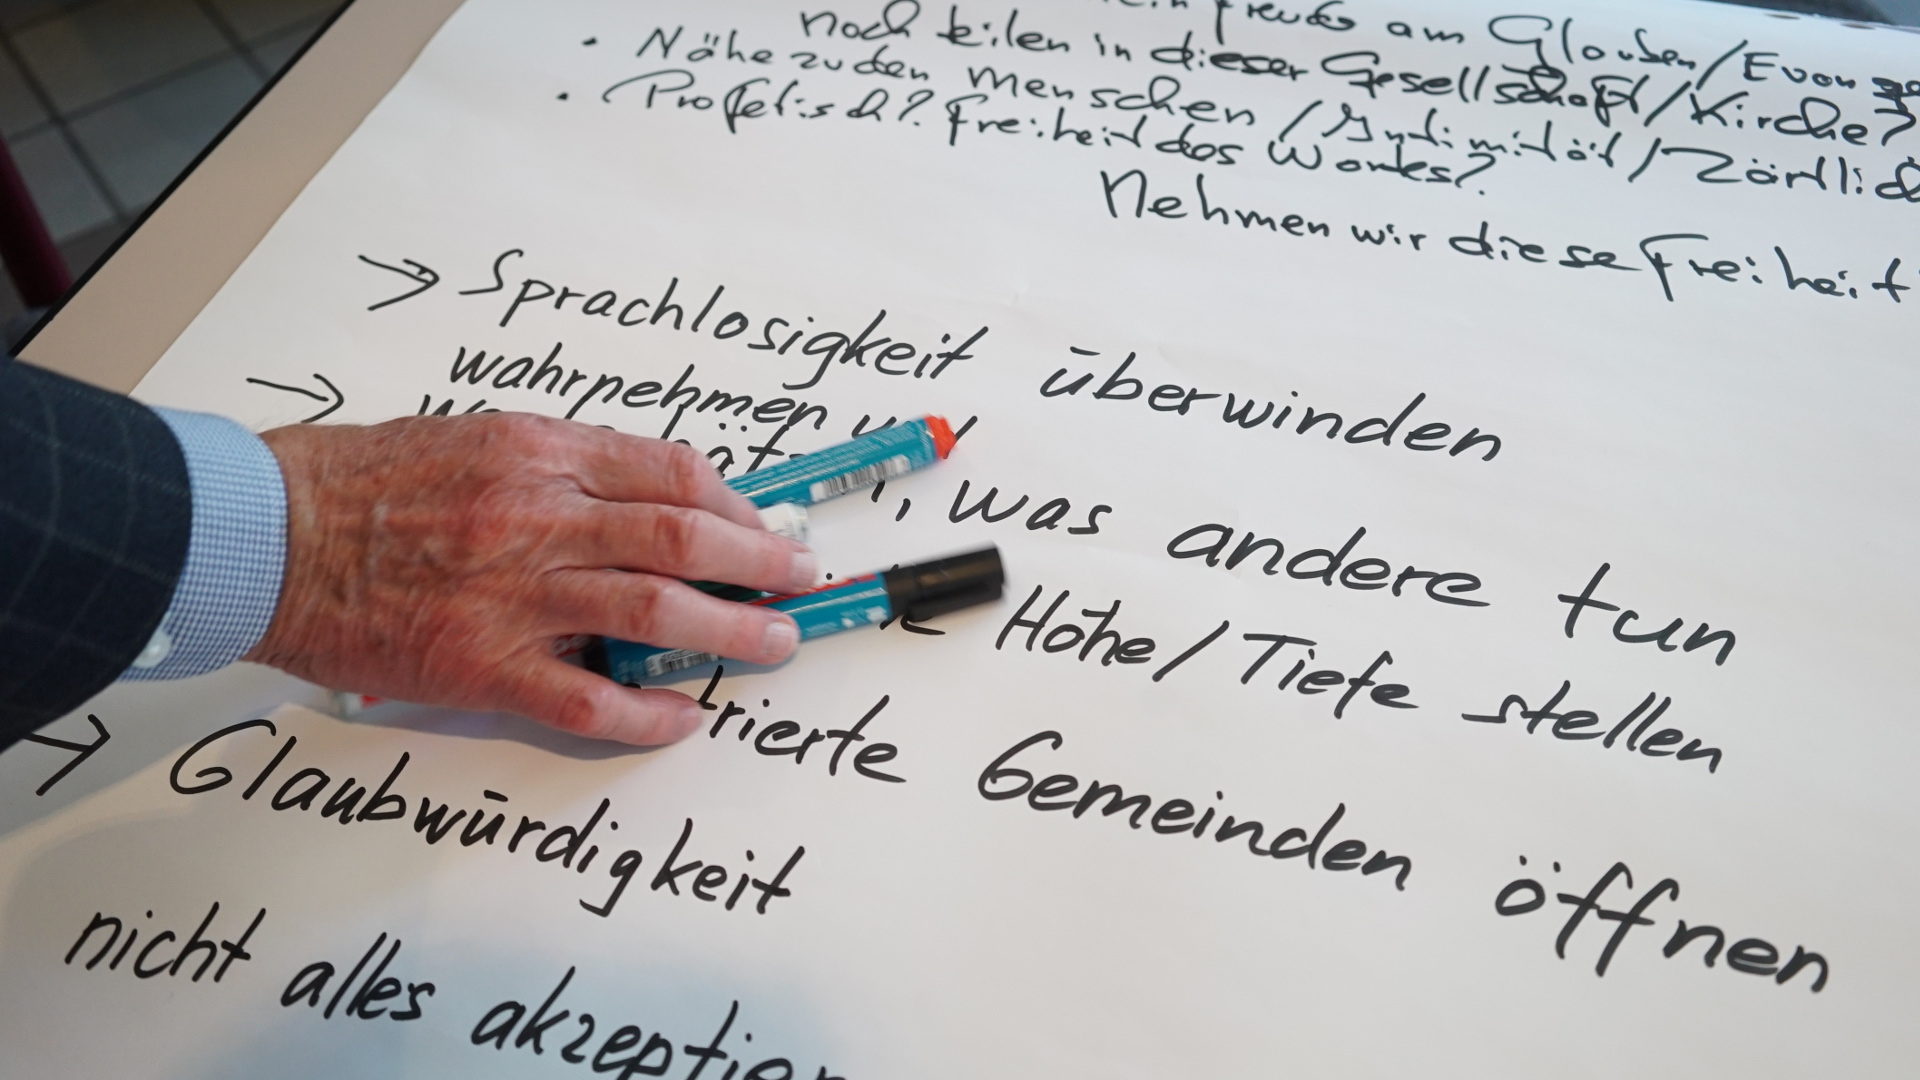 Freude am Glauben/
noch teilen in dieser Gesellschaft/Kirche?
• Nähe zu den Menschen/Intimität/
• Profetisch? Freiheit des Wortes?
Nehmen wir diese Freiheit
→ Sprachlosigkeit überwinden
→ wahrnehmen und
, was andere tun
Höhe/Tiefe stellen
trierte Gemeinden öffnen
→ Glaubwürdigkeit
nicht alles